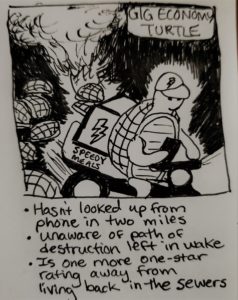 GIG ECONOMY
TURTLE
SPEEDY
MEALS
• Hasn't looked up from
phone in two miles
• Unaware of path of
destruction left in wake
• Is one more one-star
rating away from
living back in the sewers